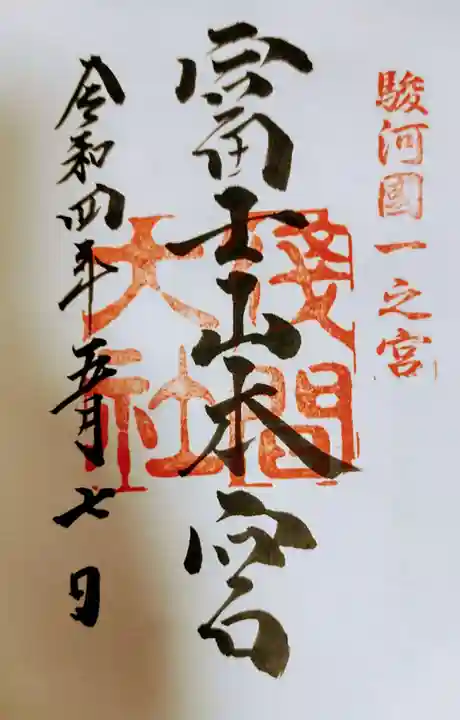 駿河國一之宮
富士山本宮
淺間
大社
令和四年五月七日